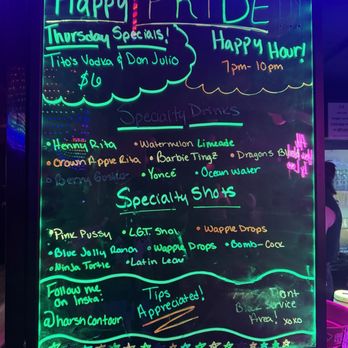 Happy PRIDE
Thursday Specials!
Tito's Vodka & Don Julio
$6
Happy Hour!
7pm-10pm
Specialty Drinks
• Henny Rita • Watermelon Limeade
• Crown Apple Rita • Barbie Tingz • Dragons
• Berry • Yoncé • Ocean Water
Specialty Shots
• Pink Pussy • LGT Shot • Wapple Drops
• Blue Jolly Ranch • Wapple Drops • Bomb-Cock
• Ninja Tortle • Latin Lean
Follow me
on Insta:
@harshcontour
Tips
Appreciated!
Dont
Block Service
Area! xoxo